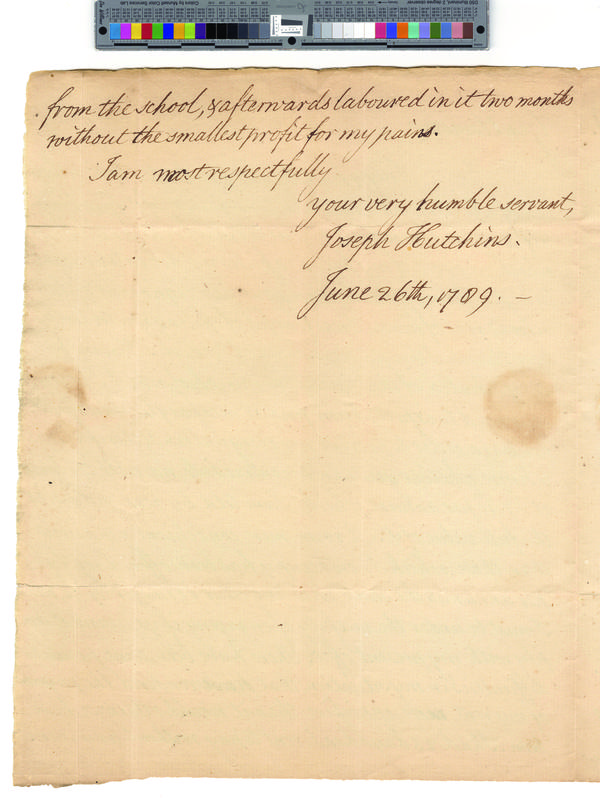 from the school, & afterwards laboured in it two months
without the smallest profit for my pains.
I am most respectfully
your very humble servant,
Joseph Hutchins.
June 26th, 1789. —